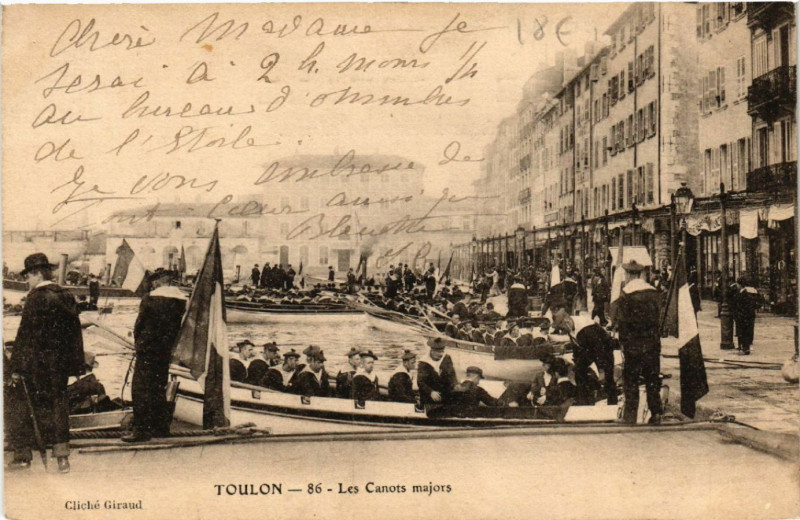 Chère Madame je
serai à 2 h. moins 1/4
au bureau d'omnibus
de l'Etoile.
Je vous embrasse de
tout cœur ainsi que
18€
TOULON — 86 - Les Canots majors
Cliché Giraud